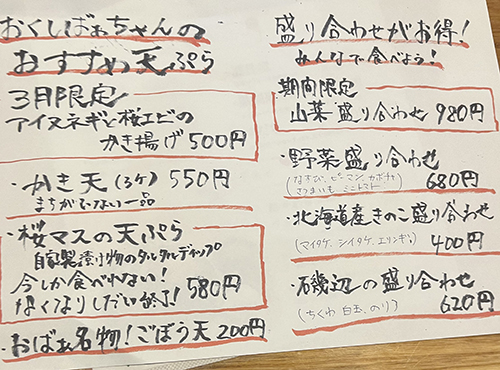 おくしばぁちゃんの
おすすめ天ぷら
3月限定
アイヌネギと桜エビの
かき揚げ 500円
・かき天(3ケ) 550円
まちがいない一品
・桜マスの天ぷら
自家製漬け物のタルタルディップ
今しか食べれない!
なくなりしだい終了! 580円
・おばぁ名物!ごぼう天 200円
盛り合わせがお得!
みんなで食べよう!
期間限定
山菜盛り合わせ 980円
・野菜盛り合わせ
(なすび、ピーマン カボチャ
さつまいも ミニトマト) 680円
・北海道産きのこ盛り合わせ
(マイタケ、シイタケ、エリンギ) 400円
・磯辺の盛り合わせ
(ちくわ 白玉、のり) 620円